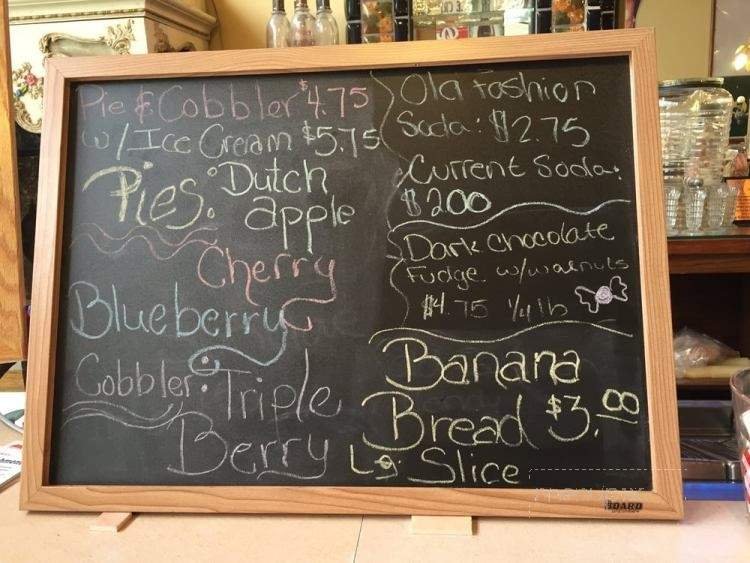 Pie & Cobbler $4.75
w/ Ice Cream $5.75
Pies: Dutch
apple
Cherry
Blueberry
Cobbler: Triple
Berry
Old Fashion
Soda: $2.75
Current Soda:
$200
Dark chocolate
Fudge w/walnuts
$4.75 1/4 lb
Banana
Bread $3.00
Lg. Slice
BOARD